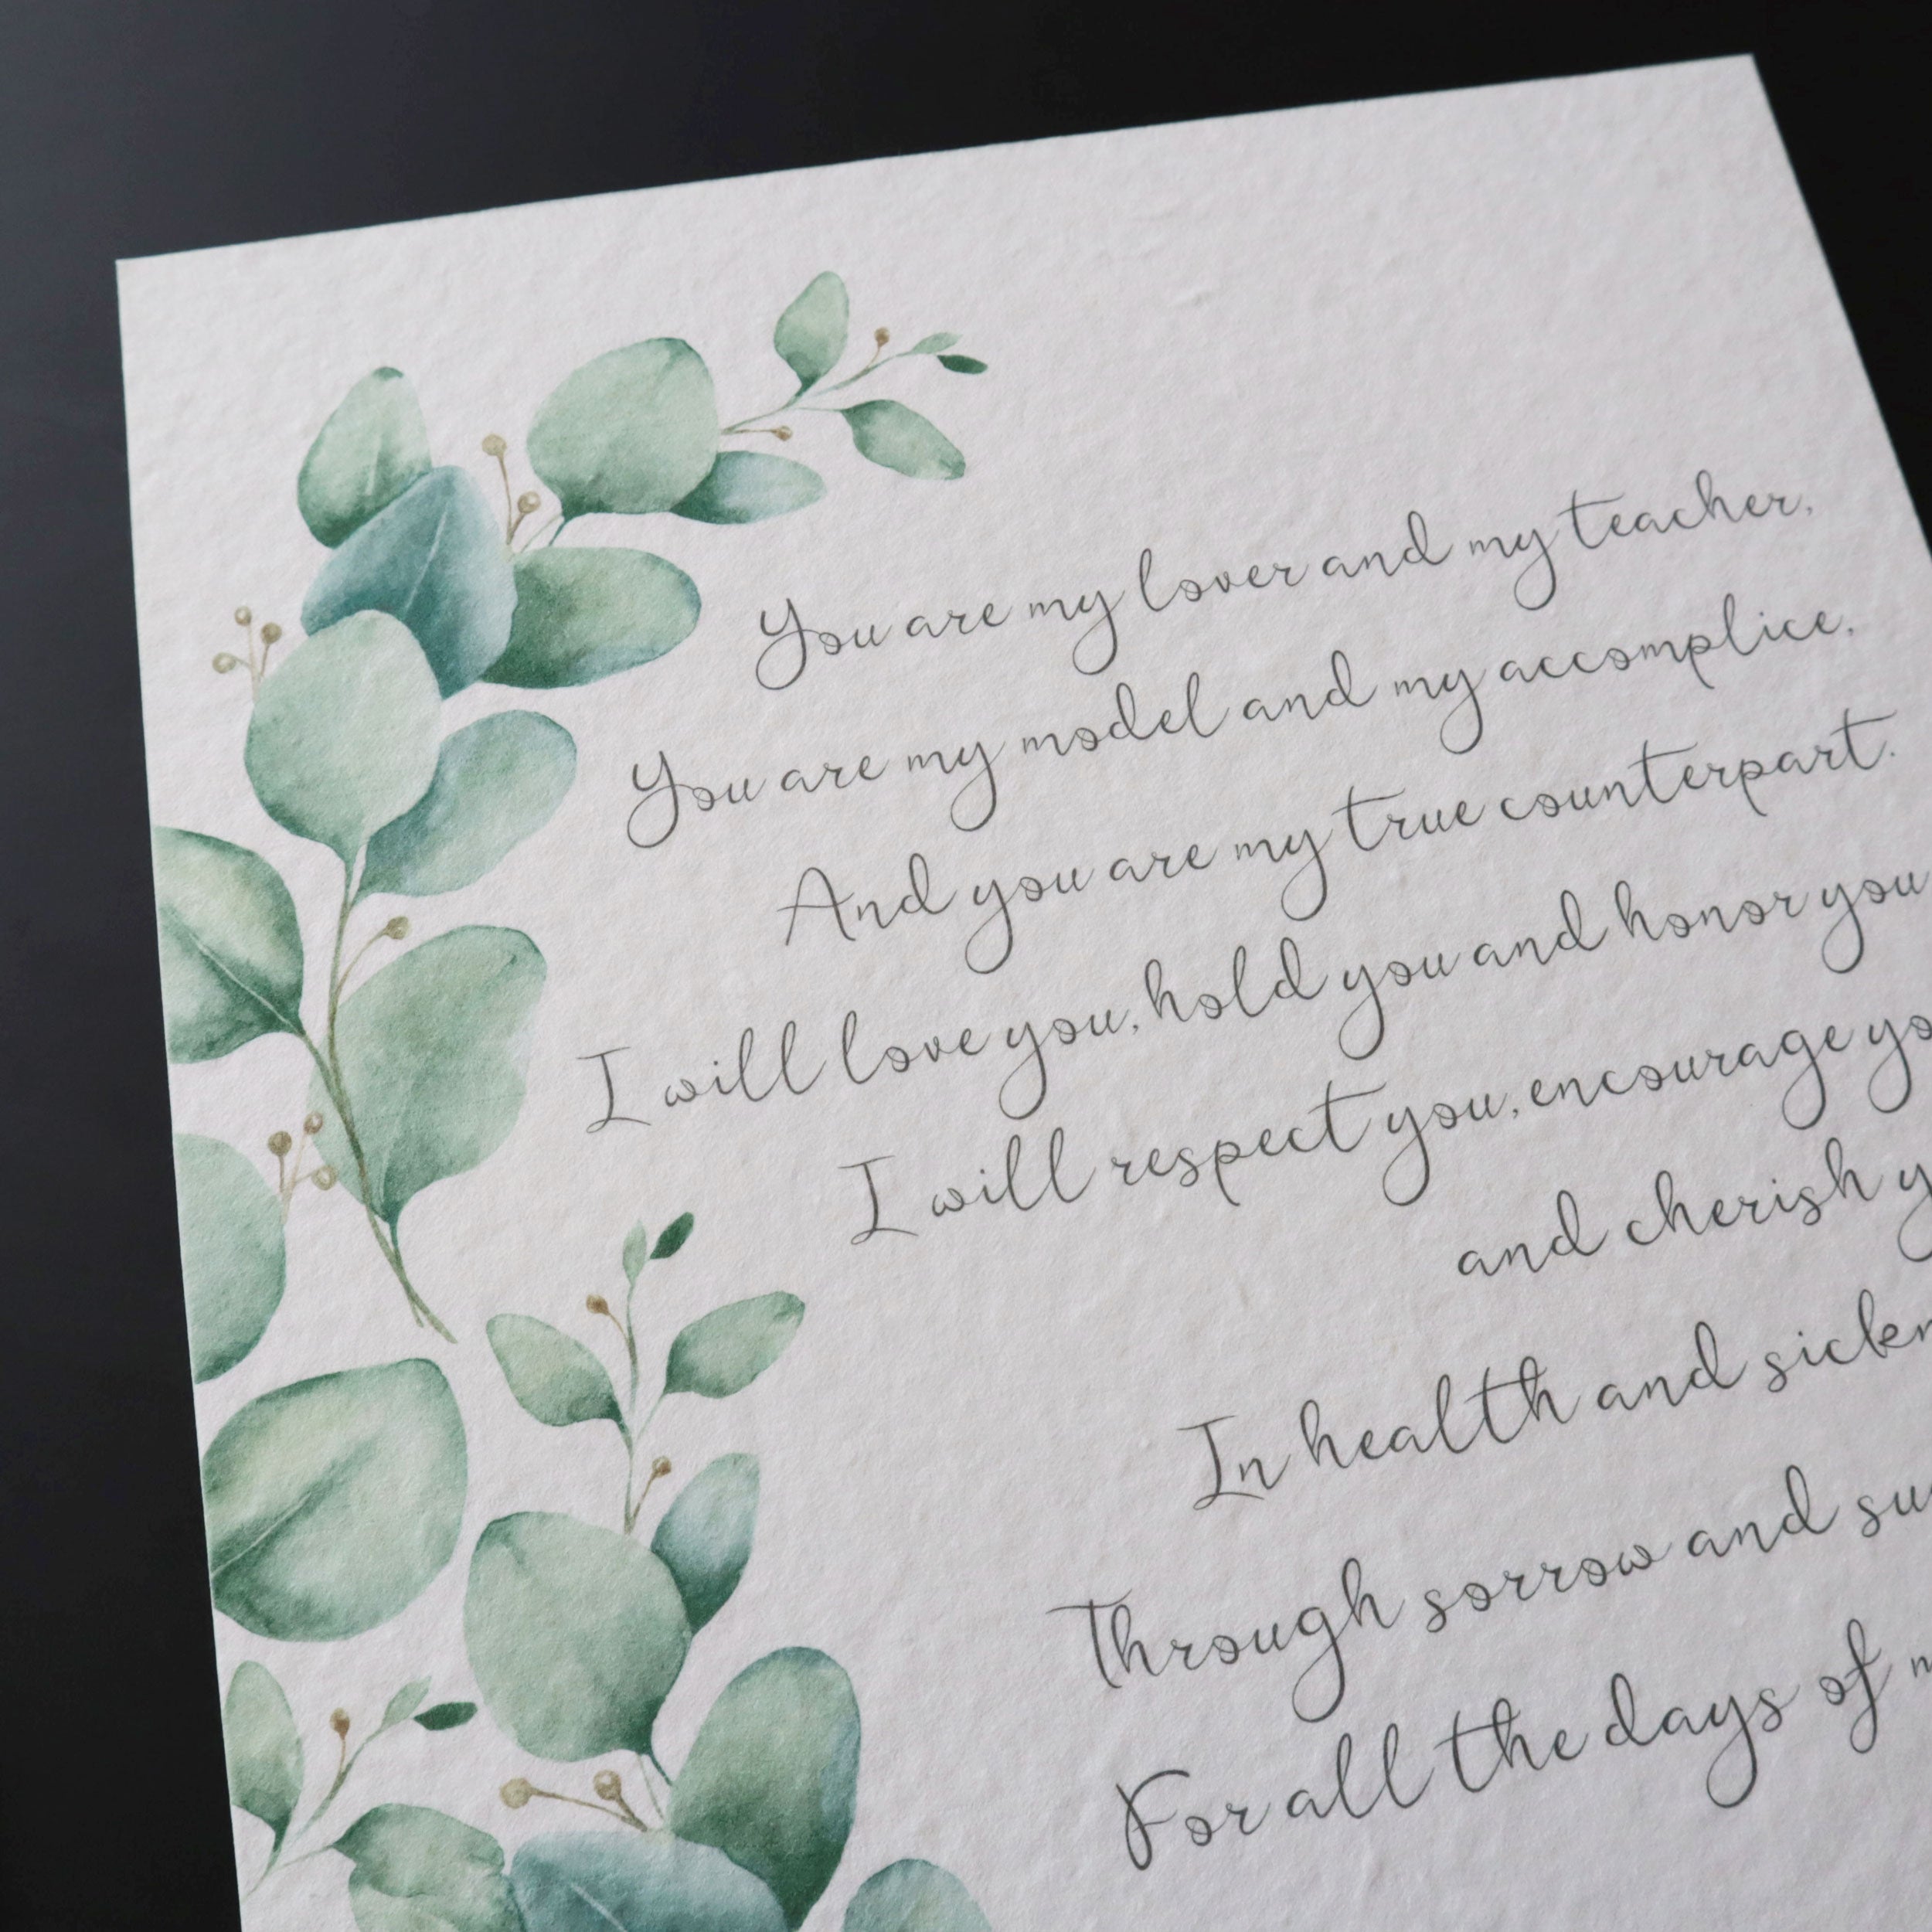 You are my lover and my teacher,
You are my model and my accomplice,
And you are my true counterpart.
I will love you, hold you and honor you
I will respect you, encourage
and cherish
In health and
Through sorrow and
For all the days of